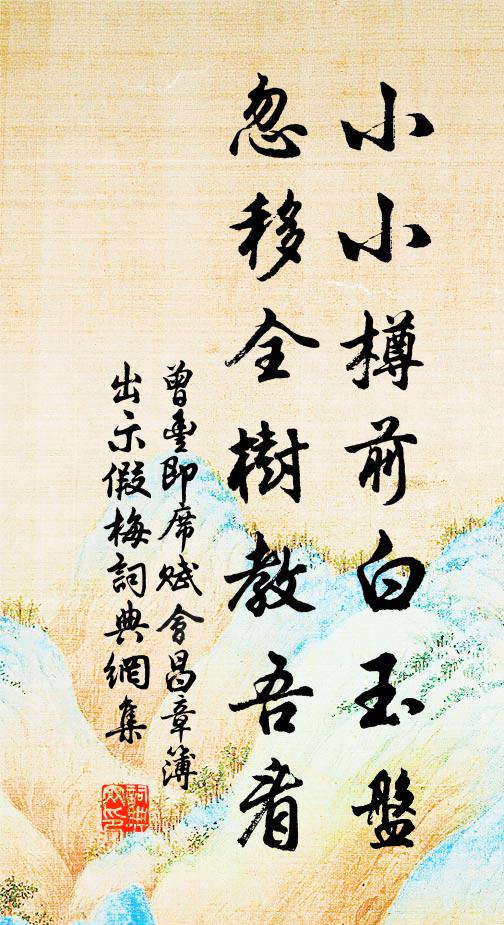 小小樽前白玉盤
忽移全樹教吾看
曾豊即席賦會昌章簿
出示假梅詞典網集